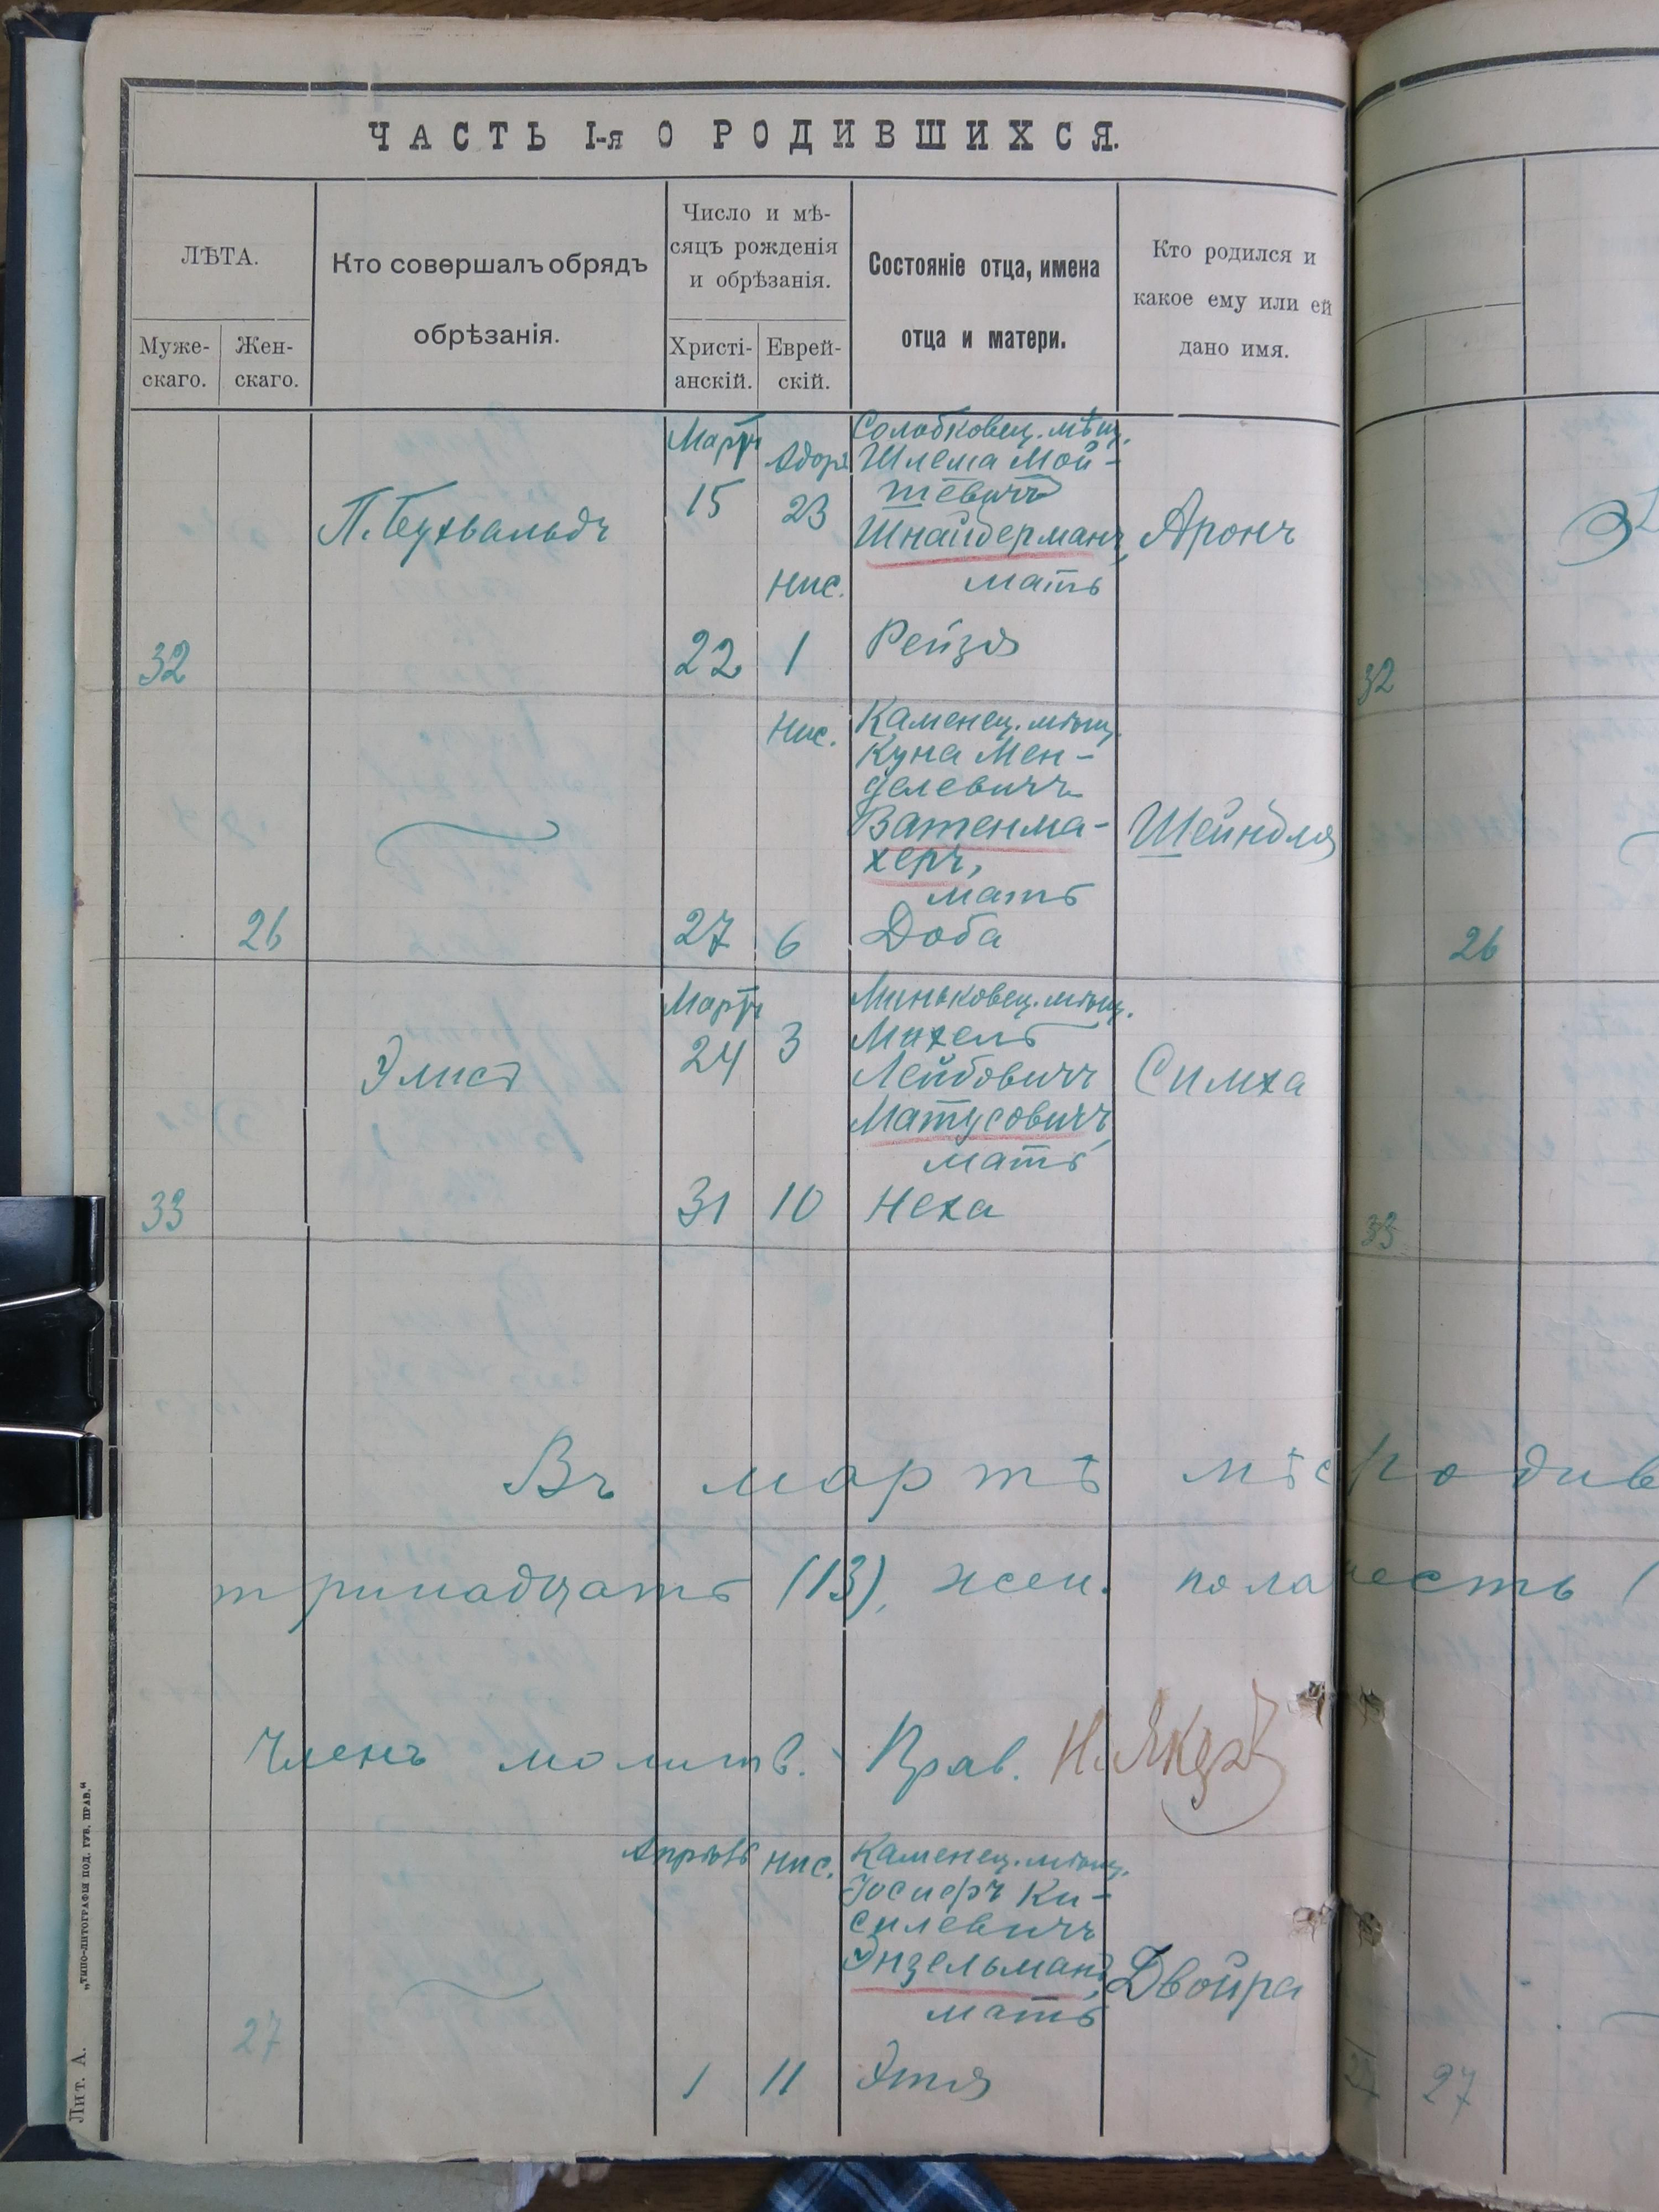 ЧАСТЬ I-я О РОДИВШИХСЯ.
ЛѢТА.
Муже-
скаго.
Жен-
скаго.
Кто совершалъ обрядъ
обрѣзанія.
Число и мѣ-
сяцъ рожденія
и обрѣзанія.
Христі-
анскій.
Еврей-
скій.
Состояніе отца, имена
отца и матери.
Кто родился и
какое ему или ей
дано имя.
32
П. Бухвальдъ
Мартъ
15
22
Адоръ
23
Нис.
1
Солобковец. мѣщ.
Шлема Мой-
шевичъ
Шнайдерманъ,
мать
Рейзя
Аронъ
32
26
27
Нис.
6
Каменец. мѣщ.
Куна Мен-
делевичъ
Ватенма-
херъ,
мать
Доба
Шейндля
26
33
Элисъ
Мартъ
24
31
3
10
Миньковец. мѣщ.
Михель
Лейбовичъ
Матусовичъ,
мать
Неха
Симха
33
Въ мартѣ мѣс родив
тринадцать (13), жен. пола шесть (
Членъ молитв. Прав. Н. Якеръ
27
Апрѣль
1
Нис.
11
Каменец. мѣщ.
Іосифъ Ки-
силевичъ
Энзельманъ,
мать
Этя
Двойра
27
Лит. А.
„ТИПО-ЛИТОГРАФІЯ ПОД. ГУБ. ПРАВ.“